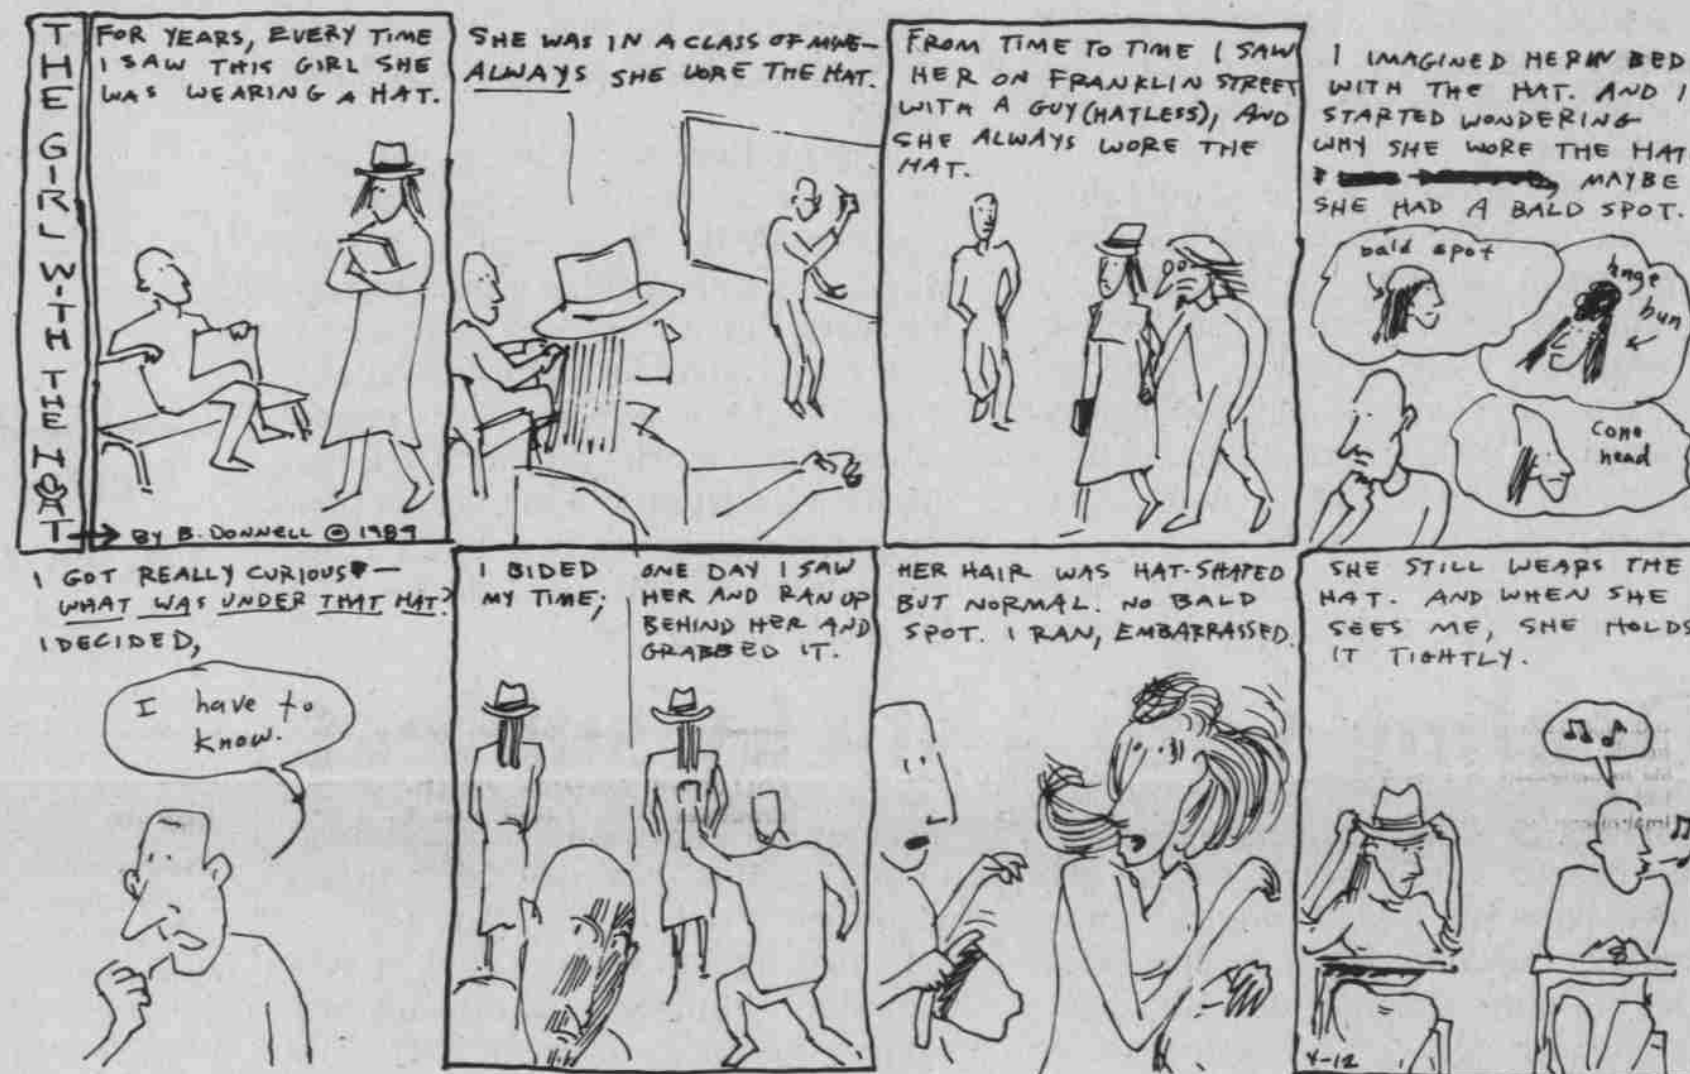 THE GIRL WITH THE HAT
FOR YEARS, EVERY TIME
I SAW THIS GIRL SHE
WAS WEARING A HAT.
BY B. DONNELL © 1989
SHE WAS IN A CLASS OF MINE—
ALWAYS SHE WORE THE HAT.
FROM TIME TO TIME I SAW
HER ON FRANKLIN STREET
WITH A GUY (HATLESS), AND
SHE ALWAYS WORE THE
HAT.
I IMAGINED HER IN BED
WITH THE HAT. AND I
STARTED WONDERING
WHY SHE WORE THE HAT
MAYBE
SHE HAD A BALD SPOT.
bald spot
huge
bun
Cone
head
I GOT REALLY CURIOUS—
WHAT WAS UNDER THAT HAT?
I DECIDED,
I have to
know.
I BIDED
MY TIME;
ONE DAY I SAW
HER AND RAN UP
BEHIND HER AND
GRABBED IT.
HER HAIR WAS HAT-SHAPED
BUT NORMAL. NO BALD
SPOT. I RAN, EMBARRASSED.
SHE STILL WEARS THE
HAT. AND WHEN SHE
SEES ME, SHE HOLDS
IT TIGHTLY.
4-12